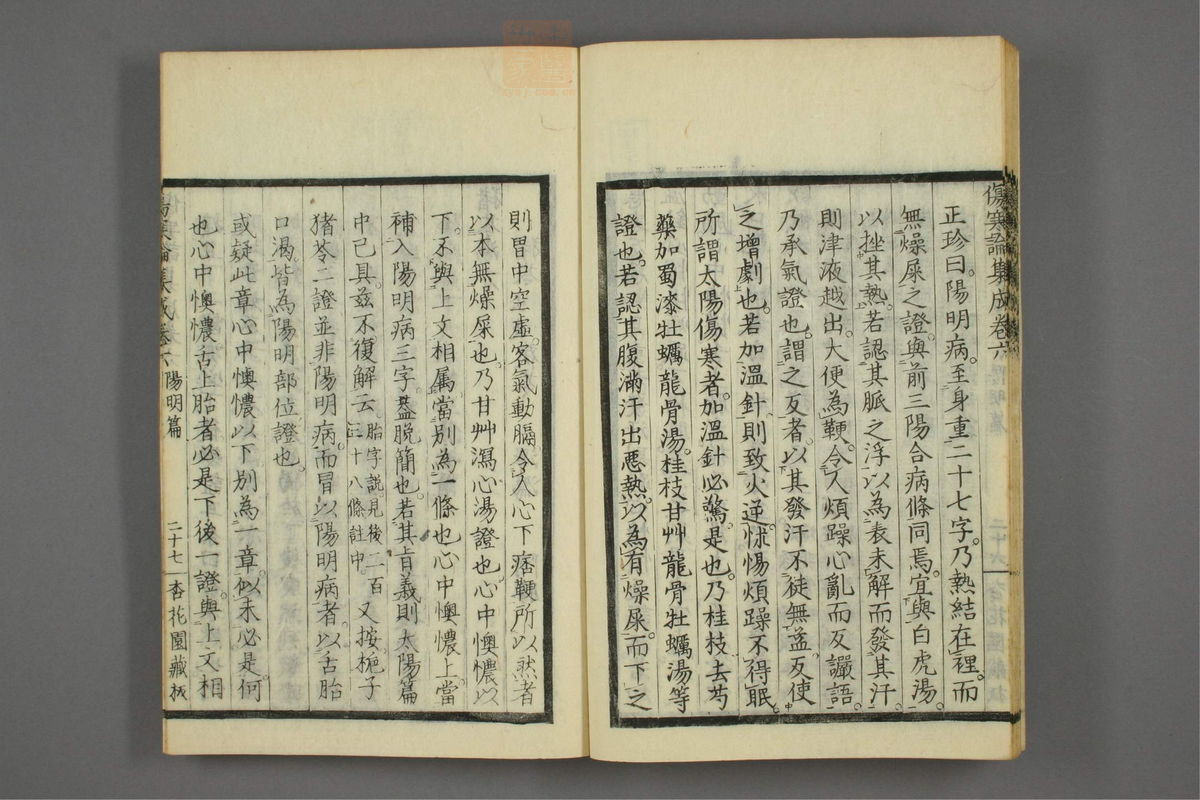 傷寒論集成卷六
正珍曰。陽明病。至身重二十七字。乃熱結在裡。而
無燥屎之證。與前三陽合病條同焉。宜與白虎湯。
以挫其熱。若認其脈之浮以為表未解而發其汗。
則津液越出。大便為鞕。令人煩躁心亂而反讝語。
乃承氣證也。謂之反者。以其發汗不徒無益。反使
之增劇也。若加溫針則致火逆。怵惕煩躁不得眠。
所謂太陽傷寒者。加溫針必驚是也。乃桂枝去芍
藥加蜀漆牡蠣龍骨湯。桂枝甘艸龍骨牡蠣湯等
證也。若認其腹滿汗出惡熱。以為有燥屎。而下之
則胃中空虛。客氣動膈。令人心下痞鞕。所以然者
以本無燥屎也。乃甘艸瀉心湯證也。心中懊憹以
下。不與上文相屬。當別為一條也。心中懊憹上。當
補入陽明病三字。蓋脫簡也。若其旨義則太陽篇
中已具。茲不復解云。胎字說。見後二百三十八條註中。又按。梔子
猪苓二證並非陽明病。而冒以陽明病者。以舌胎
口渴。皆為陽明部位證也。
或疑此章心中懊憹以下別為一章。似未必是。何
也。心中懊憹舌上胎者。必是下後一證。與上文相
傷寒論集成卷六 陽明篇 二十七 杏花園藏板